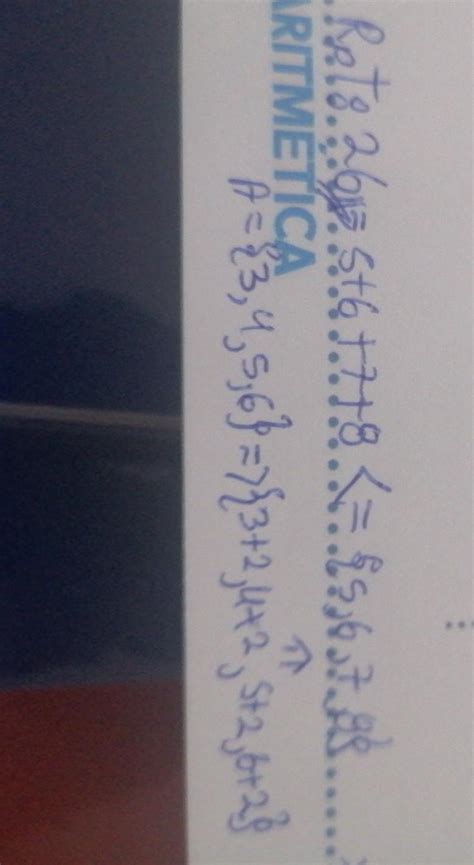 Rpt: 26 = 5+6+7+8 <= {5,6,7,8}
ARITMETICA
A = {3,4,5,6} => {3+2,4+2,5+2,6+2}
⇑